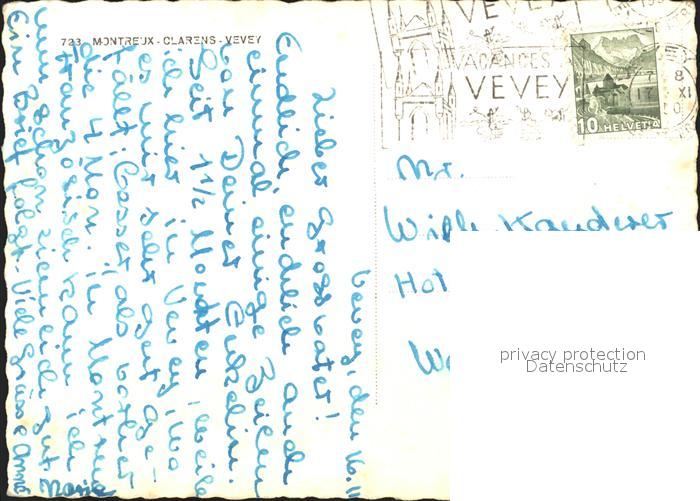 723 MONTREUX - CLARENS - VEVEY
VEVEY
VACANCES
VEVEY
10 HELVETIA
Mr.
Willi Kauderer
Hot
We
privacy protection
Datenschutz
Vevey, den 16. 11
Lieber Grossvater!
Endlich, endlich auch
einmal einige Zeilen
von Deiner Enkelin.
Seit 1 1/2 Monaten weile
ich hier in Vevey, wo
es mir sehr gut ge-
fällt. Besser als vorher
die 4 Mon. in Montreux
Französisch kann ich
nun schon ziemlich gut.
Ein Brief folgt. Viele Grüsse